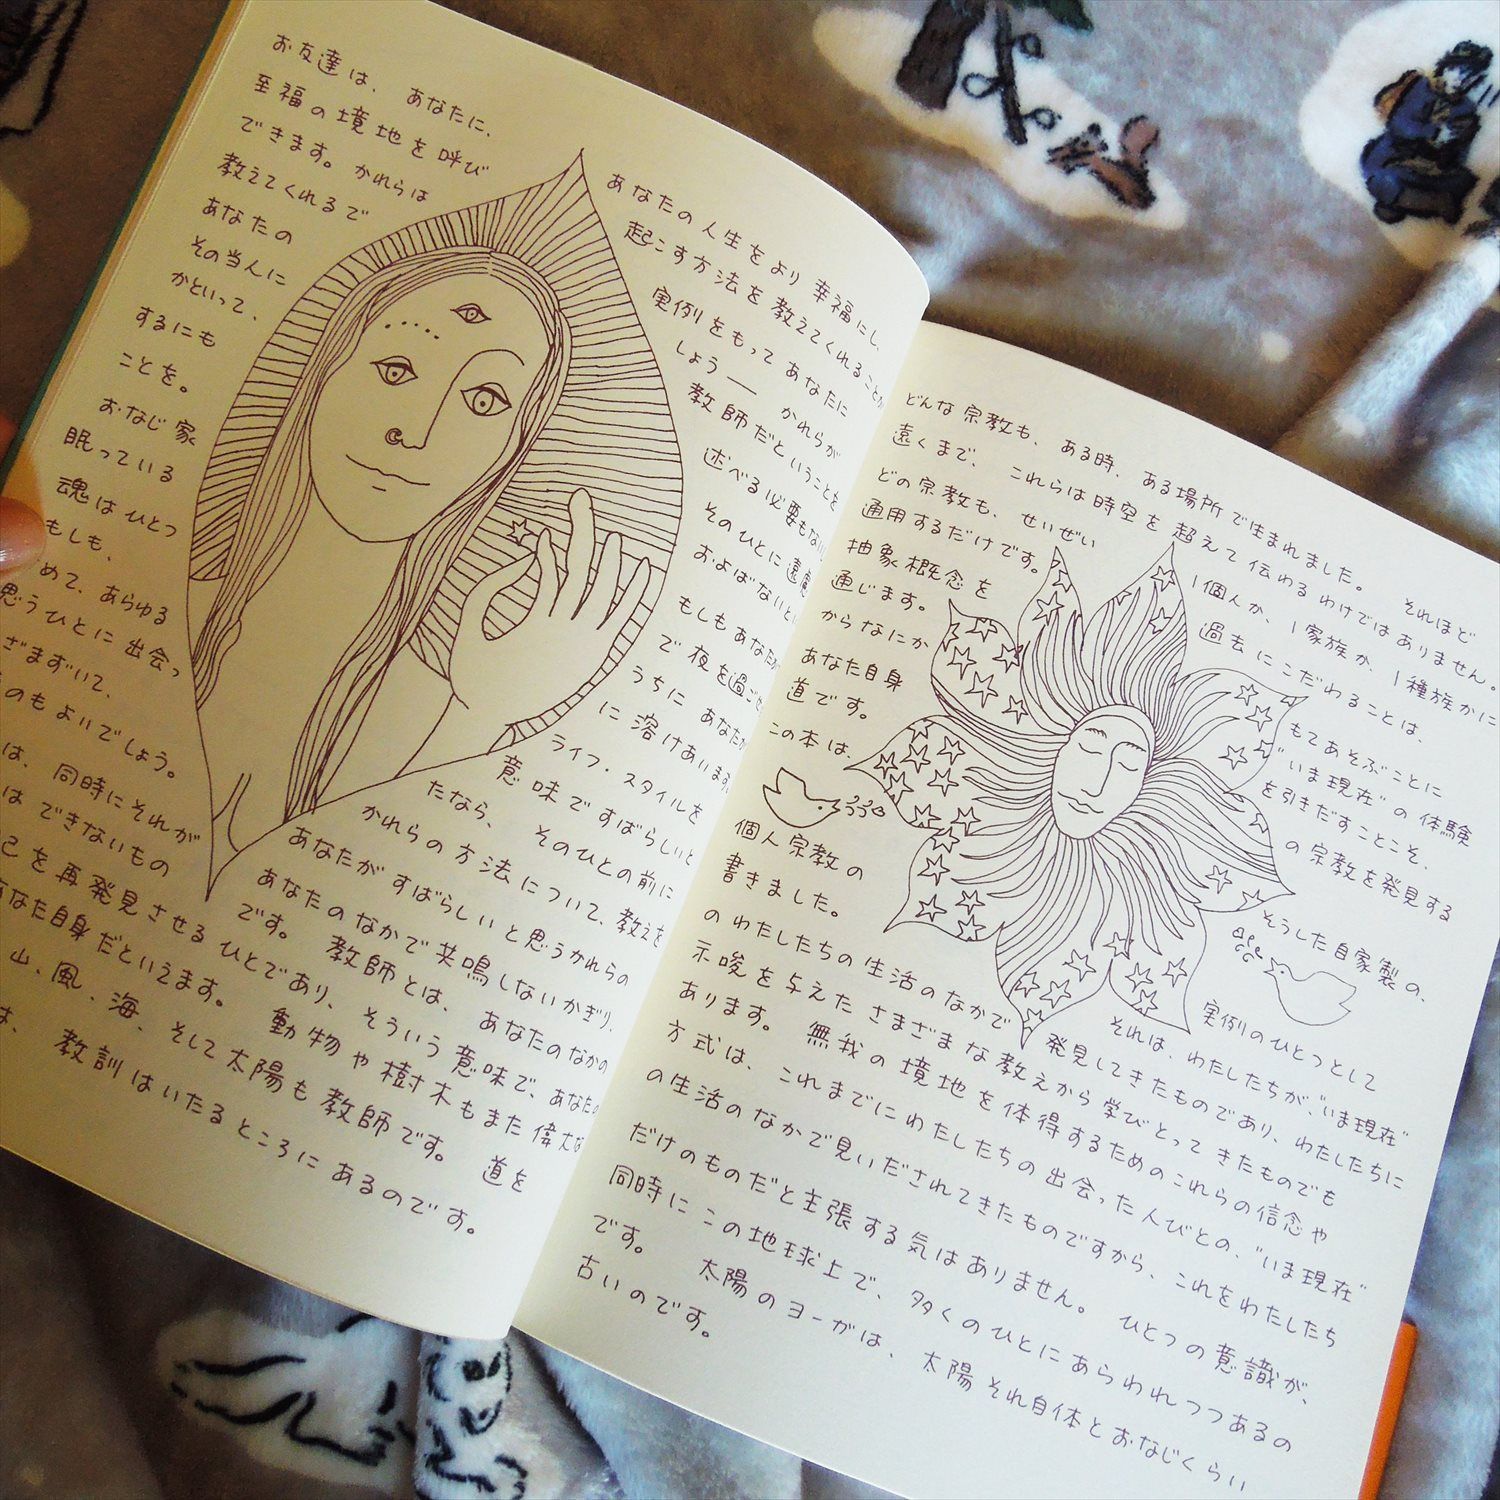 お友達は、 あなたに、 あなたの人生をより幸福にし、
至福の境地を呼び 起こす方法を教えてくれることが
できます。 かれらは 実例をもってあなたに
教えてくれるで しょう— かれらが
あなたの 教師だということを
述べる必要もない
その当人に そのひとに遠慮
かといって、
するにも およばないと
ことを。 もしもあなたが
おなじ家 で夜を過ごせ
眠っている うちに あなたが
魂はひとつ に溶けあいます
もしも、 ライフ・スタイルを
めて、あらゆる 意味ですばらしいと
思うひとに出会っ たなら、 そのひとの前に
ざまずいて、 かれらの方法について、教えを
のもよいでしょう。 あなたがすばらしいと思うかれらの
は、同時にそれが あなたのなかで共鳴しないかぎり、
はできないもの です。 教師とは、あなたのなかの
己を再発見させるひとであり、そういう意味で、あなたの
あなた自身だといえます。 動物や樹木もまた偉大な
山、風、海、そして太陽も教師です。 道を
は、 教訓はいたるところにあるのです。
どんな宗教も、ある時、ある場所で生まれました。 それほど
遠くまで、これらは時空を超えて伝わるわけではありません。
どの宗教も、せいぜい 1個人か、1家族か、1種族かに
通用するだけです。 過去にこだわることは、
抽象概念を もてあそぶことに
通じます。 "いま現在"の体験
からなにか を引きだすことこそ、
あなた自身 の宗教を発見する
道です。
この本は、 そうした自家製の、
個人宗教の 実例のひとつとして
書きました。 それは、わたしたちが、"いま現在"
のわたしたちの生活のなかで発見してきたものであり、わたしたちに
示唆を与えたさまざまな教えから学びとってきたものでも
あります。 無我の境地を体得するためのこれらの信念や
方式は、これまでにわたしたちの出会った人びとの、"いま現在"
の生活のなかで見いだされてきたものですから、これをわたしたち
だけのものだと主張する気はありません。 ひとつの意識が、
同時にこの地球上で、多くのひとにあらわれつつあるの
です。 太陽のヨーガは、太陽それ自体とおなじくらい
古いのです。